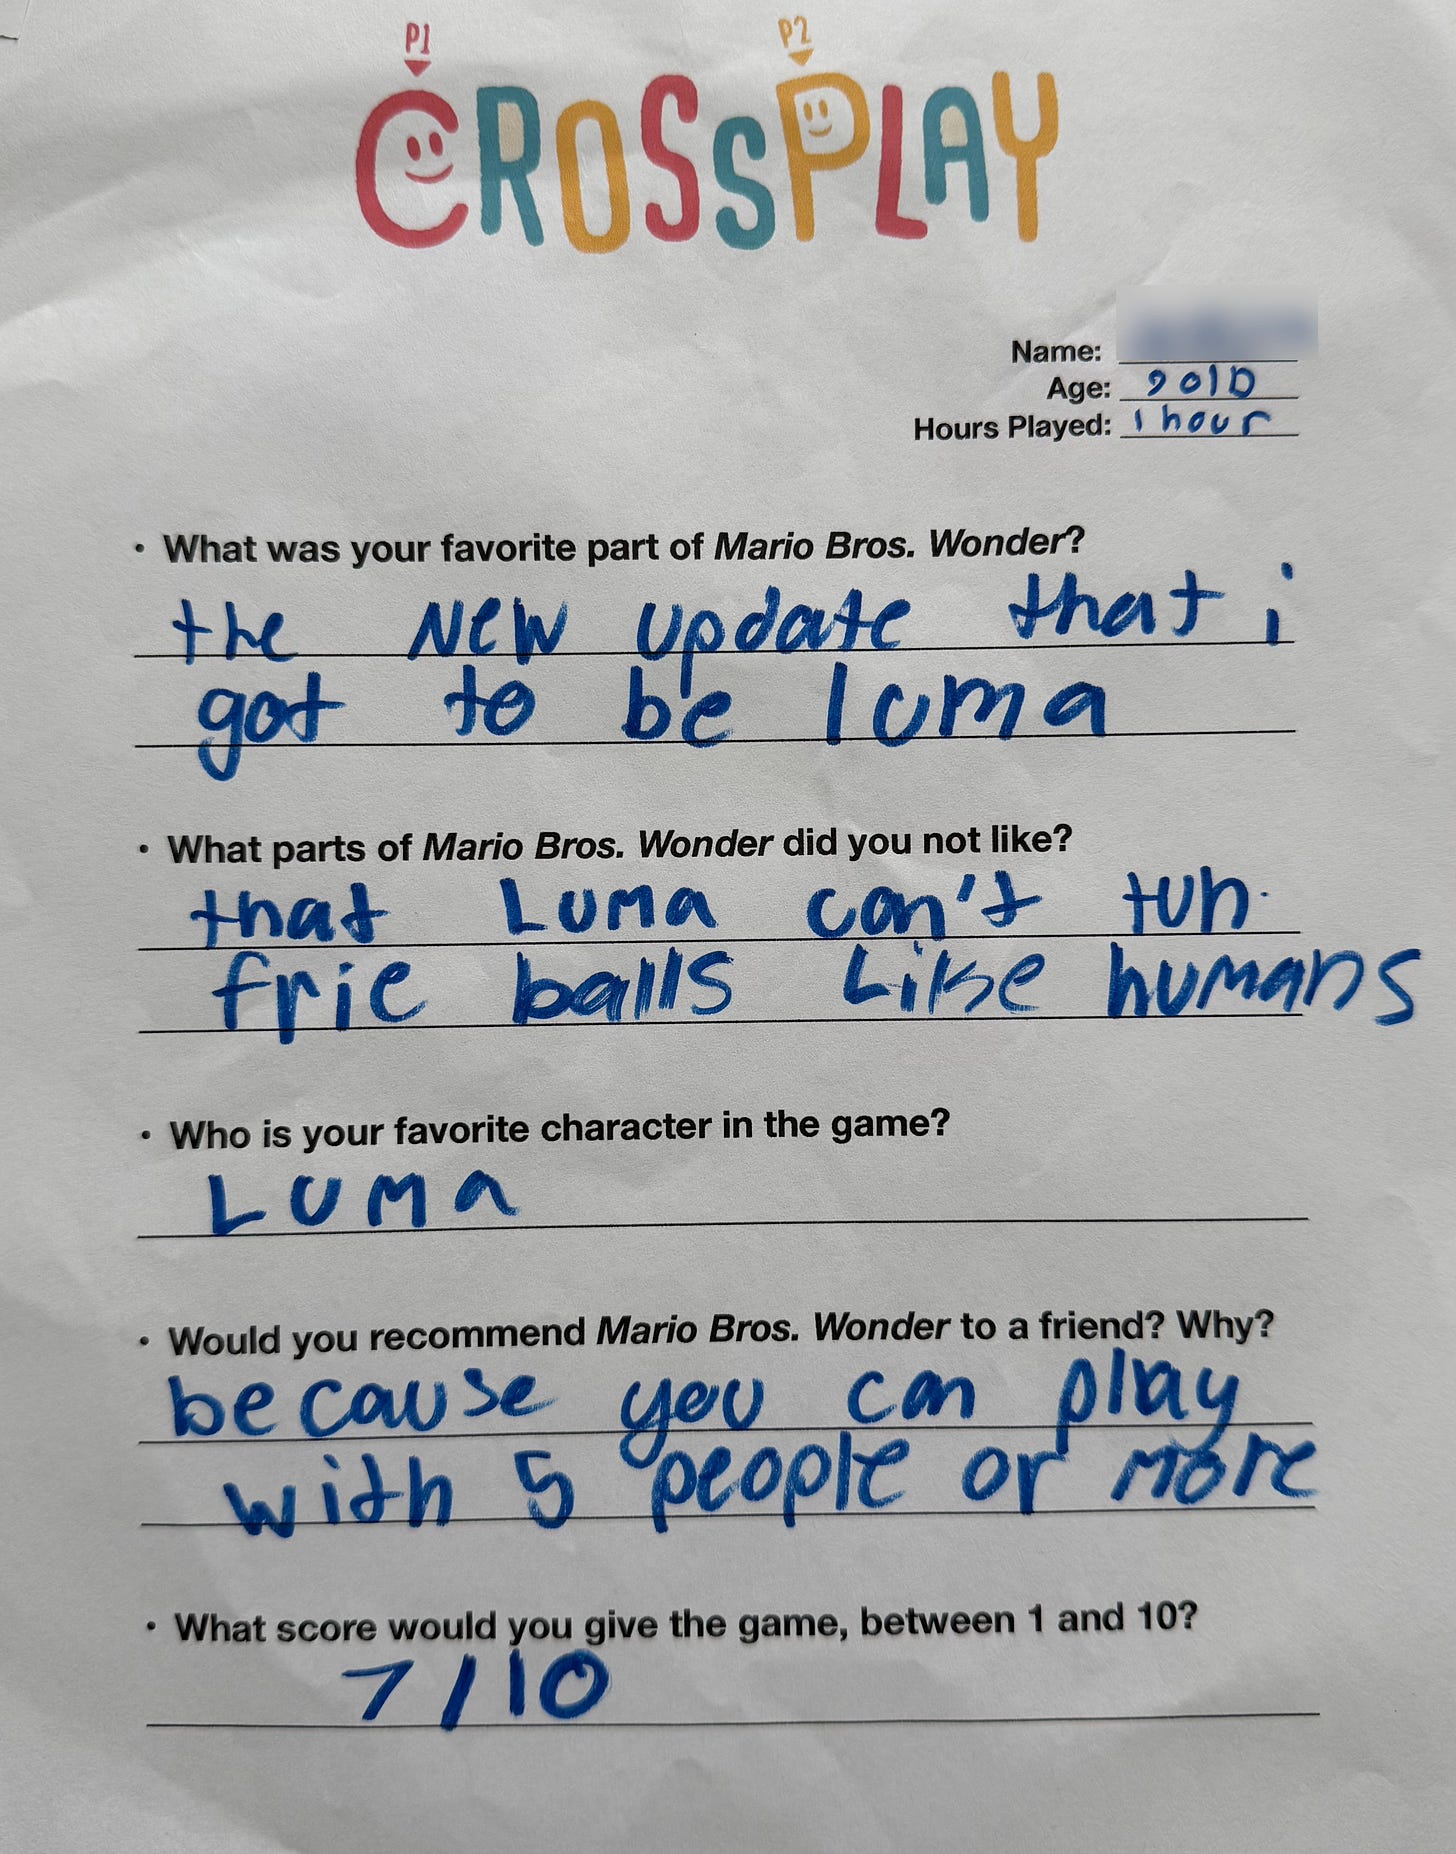 P1 P2
CROSSPLAY
Name:
Age: 9 old
Hours Played: 1 hour
• What was your favorite part of Mario Bros. Wonder?
the New update that i
got to be luma
• What parts of Mario Bros. Wonder did you not like?
that Luma can't tuh
frie balls Like humans
• Who is your favorite character in the game?
LUMa
• Would you recommend Mario Bros. Wonder to a friend? Why?
because you can play
with 5 people or more
• What score would you give the game, between 1 and 10?
7/10